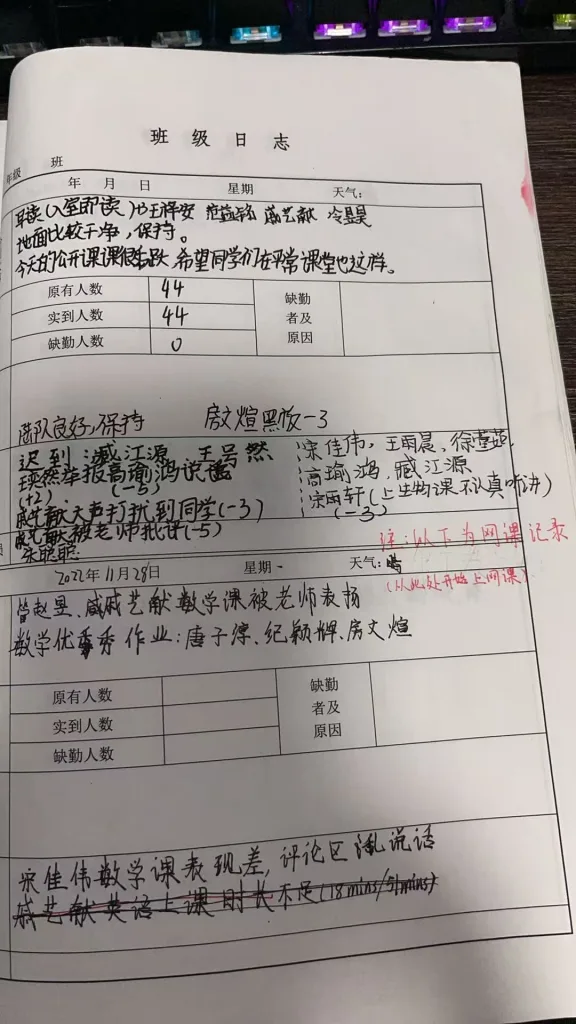 班级日志
年级 班
年 月 日 星期 天气：
早读(入室即读)比 王梓安 戚艺献 冷昱昊
地面比较干净,保持。
今天的公开课课很活跃,希望同学们在平常课堂也这样。
原有人数 44 缺勤者及原因
实到人数 44
缺勤人数 0
路队良好,保持 房文煊黑板-3
迟到:臧江源 王昊然 宋佳伟,王雨晨,徐
然举报高瑜鸿说话 高瑜鸿,臧江源
(+2) (-5) 宋雨轩(上生物课不认真听讲)
戚艺献大声打扰到同学(-3) (-3)
戚艺献被老师批评(-5)
注:以下为网课记录
2022年11月28日 星期一 天气：晴
(从此处开始上网课)
曾赵昱、戚艺献数学课被老师表扬
数学优秀作业:唐子淳、纪颖辉、房文煊
原有人数 缺勤者及原因
实到人数
缺勤人数
宋佳伟数学课表现差,评论区乱说话
戚艺献英语上课时长不足(18mins/51mins)